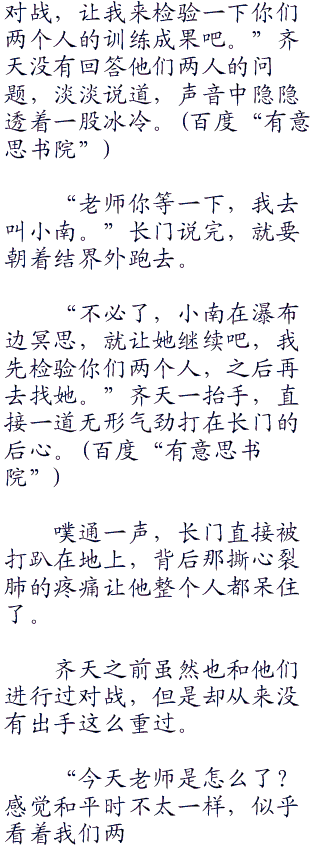 对战，让我来检验一下你们
两个人的训练成果吧。”齐
天没有回答他们两人的问
题，淡淡说道，声音中隐隐
透着一股冰冷。(百度“有意
思书院”)
“老师你等一下，我去
叫小南。”长门说完，就要
朝着结界外跑去。
“不必了，小南在瀑布
边冥思，就让她继续吧，我
先检验你们两个人，之后再
去找她。”齐天一抬手，直
接一道无形气劲打在长门的
后心。(百度“有意思书
院”)
噗通一声，长门直接被
打趴在地上，背后那撕心裂
肺的疼痛让他整个人都呆住
了。
齐天之前虽然也和他们
进行过对战，但是却从来没
有出手这么重过。
“今天老师是怎么了？
感觉和平时不太一样，似乎
看着我们两